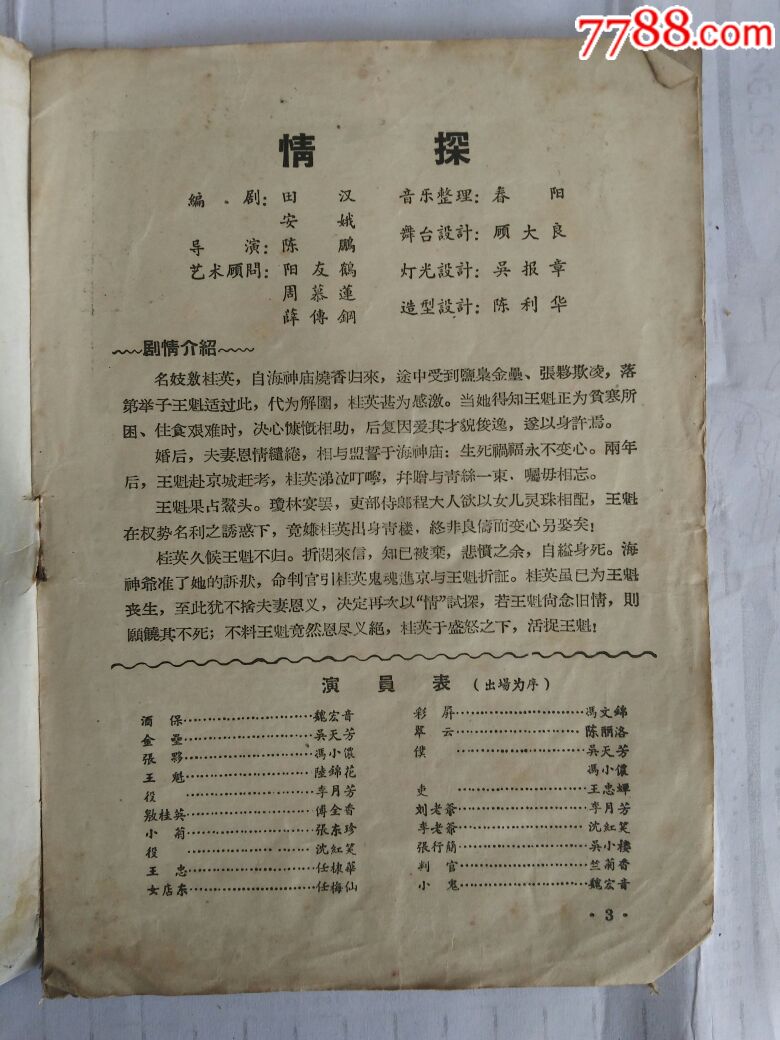 7788.com
情 探
編 剧：田 汉
安 娥
导 演：陈 鹏
艺术顾問：阳友鶴
周慕蓮
薛傳鋼
音乐整理：春 阳
舞台設計：顾大良
灯光設計：吳报章
造型設計：陈利华
剧情介紹
名妓敫桂英，自海神庙燒香归來，途中受到鹽梟金壘、張夥欺凌，落
第举子王魁适过此，代为解圍，桂英甚为感激。当她得知王魁正为貧寒所
困、住食艰难时，决心慷慨相助，后复因爱其才貌俊逸，遂以身許焉。
婚后，夫妻恩情繾綣，相与盟誓于海神庙：生死禍福永不变心。兩年
后，王魁赴京城赶考，桂英涕泣叮嚀，幷贈与青絲一束，囑毋相忘。
王魁果占鰲头。瓊林宴罢，吏部侍郎程大人欲以女儿灵珠相配，王魁
在权势名利之誘惑下，竟嫌桂英出身青楼，終非良儔而变心另娶矣！
桂英久候王魁不归。折閱來信，知已被棄，悲憤之余，自縊身死。海
神爺准了她的訴狀，命判官引桂英鬼魂進京与王魁折証。桂英虽已为王魁
丧生，至此犹不捨夫妻恩义，决定再次以“情”試探，若王魁尙念旧情，則
願饒其不死；不料王魁竟然恩尽义絕，桂英于盛怒之下，活捉王魁！
演 員 表（出場为序）
酒 保……魏宏音
金 壘……吳天芳
張 夥……馮小儂
王 魁……陸錦花
役 ……李月芳
敫桂英……傅全香
小 菊……張东珍
役 ……沈紅笑
王 忠……任棣華
女店东……任梅仙
彩 屏……馮文錦
翠 云……陈丽洛
僕 ……吳天芳
馮小儂
吏 ……王忠蟬
刘老爺……李月芳
李老爺……沈紅笑
張行簡……吳小楼
判 官……竺菊香
小 鬼……魏宏音
·3·